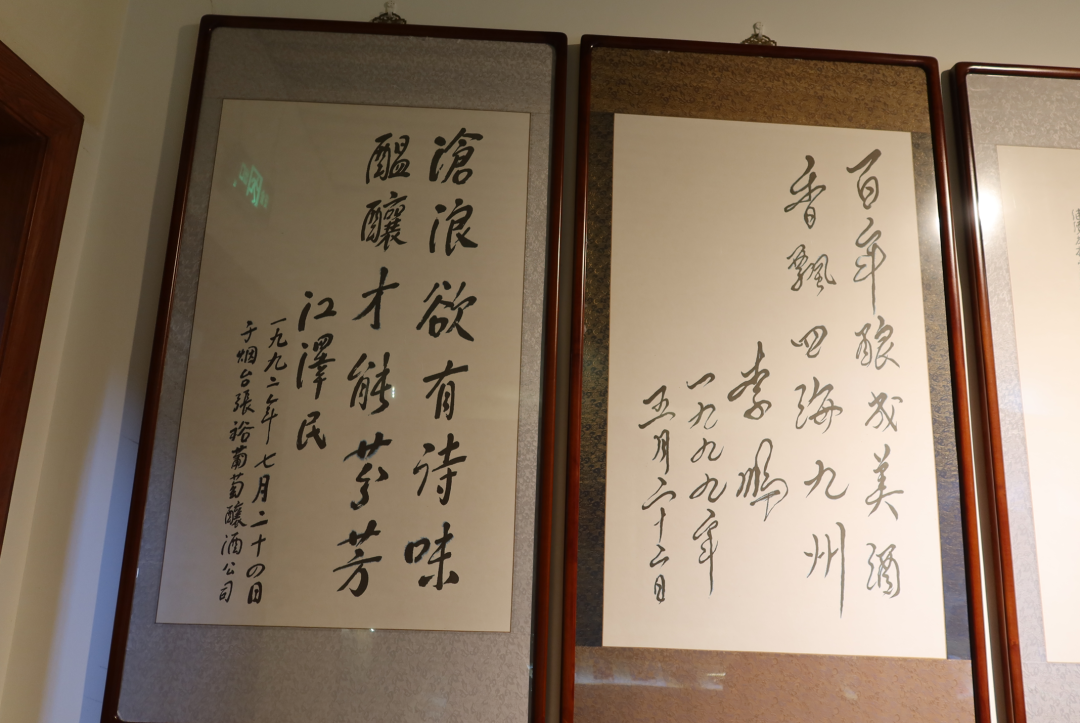 滄浪欲有诗味
醖釀才能芬芳
江澤民
一九九二年七月二十四日
于烟台張裕葡萄釀酒公司
百年酿成美酒
香飘四海九州
李鹏
一九九九年
五月二十二日